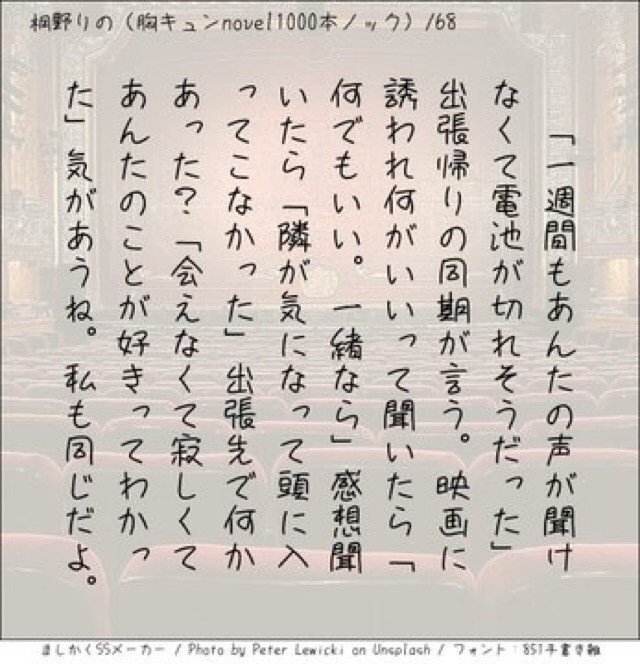 桐野りの（胸キュンnovel1000本ノック）/68
「一週間もあんたの声が聞け
なくて電池が切れそうだった」
出張帰りの同期が言う。映画に
誘われ何がいいって聞いたら「
何でもいい。一緒なら」感想聞
いたら「隣が気になって頭に入
ってこなかった」出張先で何か
あった？「会えなくて寂しくて
あんたのことが好きってわかっ
た」気があうね。私も同じだよ。
ましかくSSメーカー / Photo by Peter Lewicki on Unsplash / フォント：851手書き雑